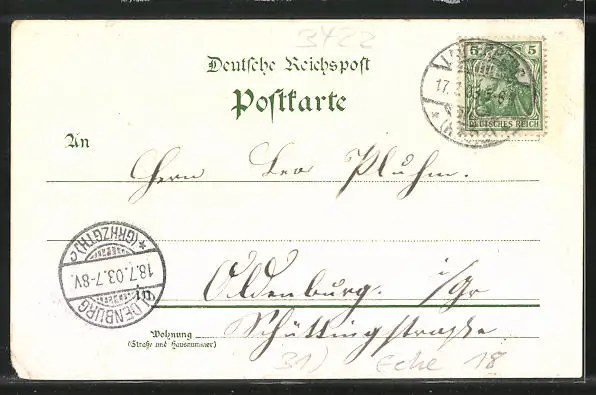 3422
Deutsche Reichspost
Postkarte
5 5
DEUTSCHES REICH
17.
An
Herrn Leo Pluhm.
OLDENBURG
*(GRHZGTH)c
18.7.03.7-8V.
in
Oldenburg. i/Gr
Wohnung
(Straße und Hausnummer)
Schüttingstraße
31) Ecke 18